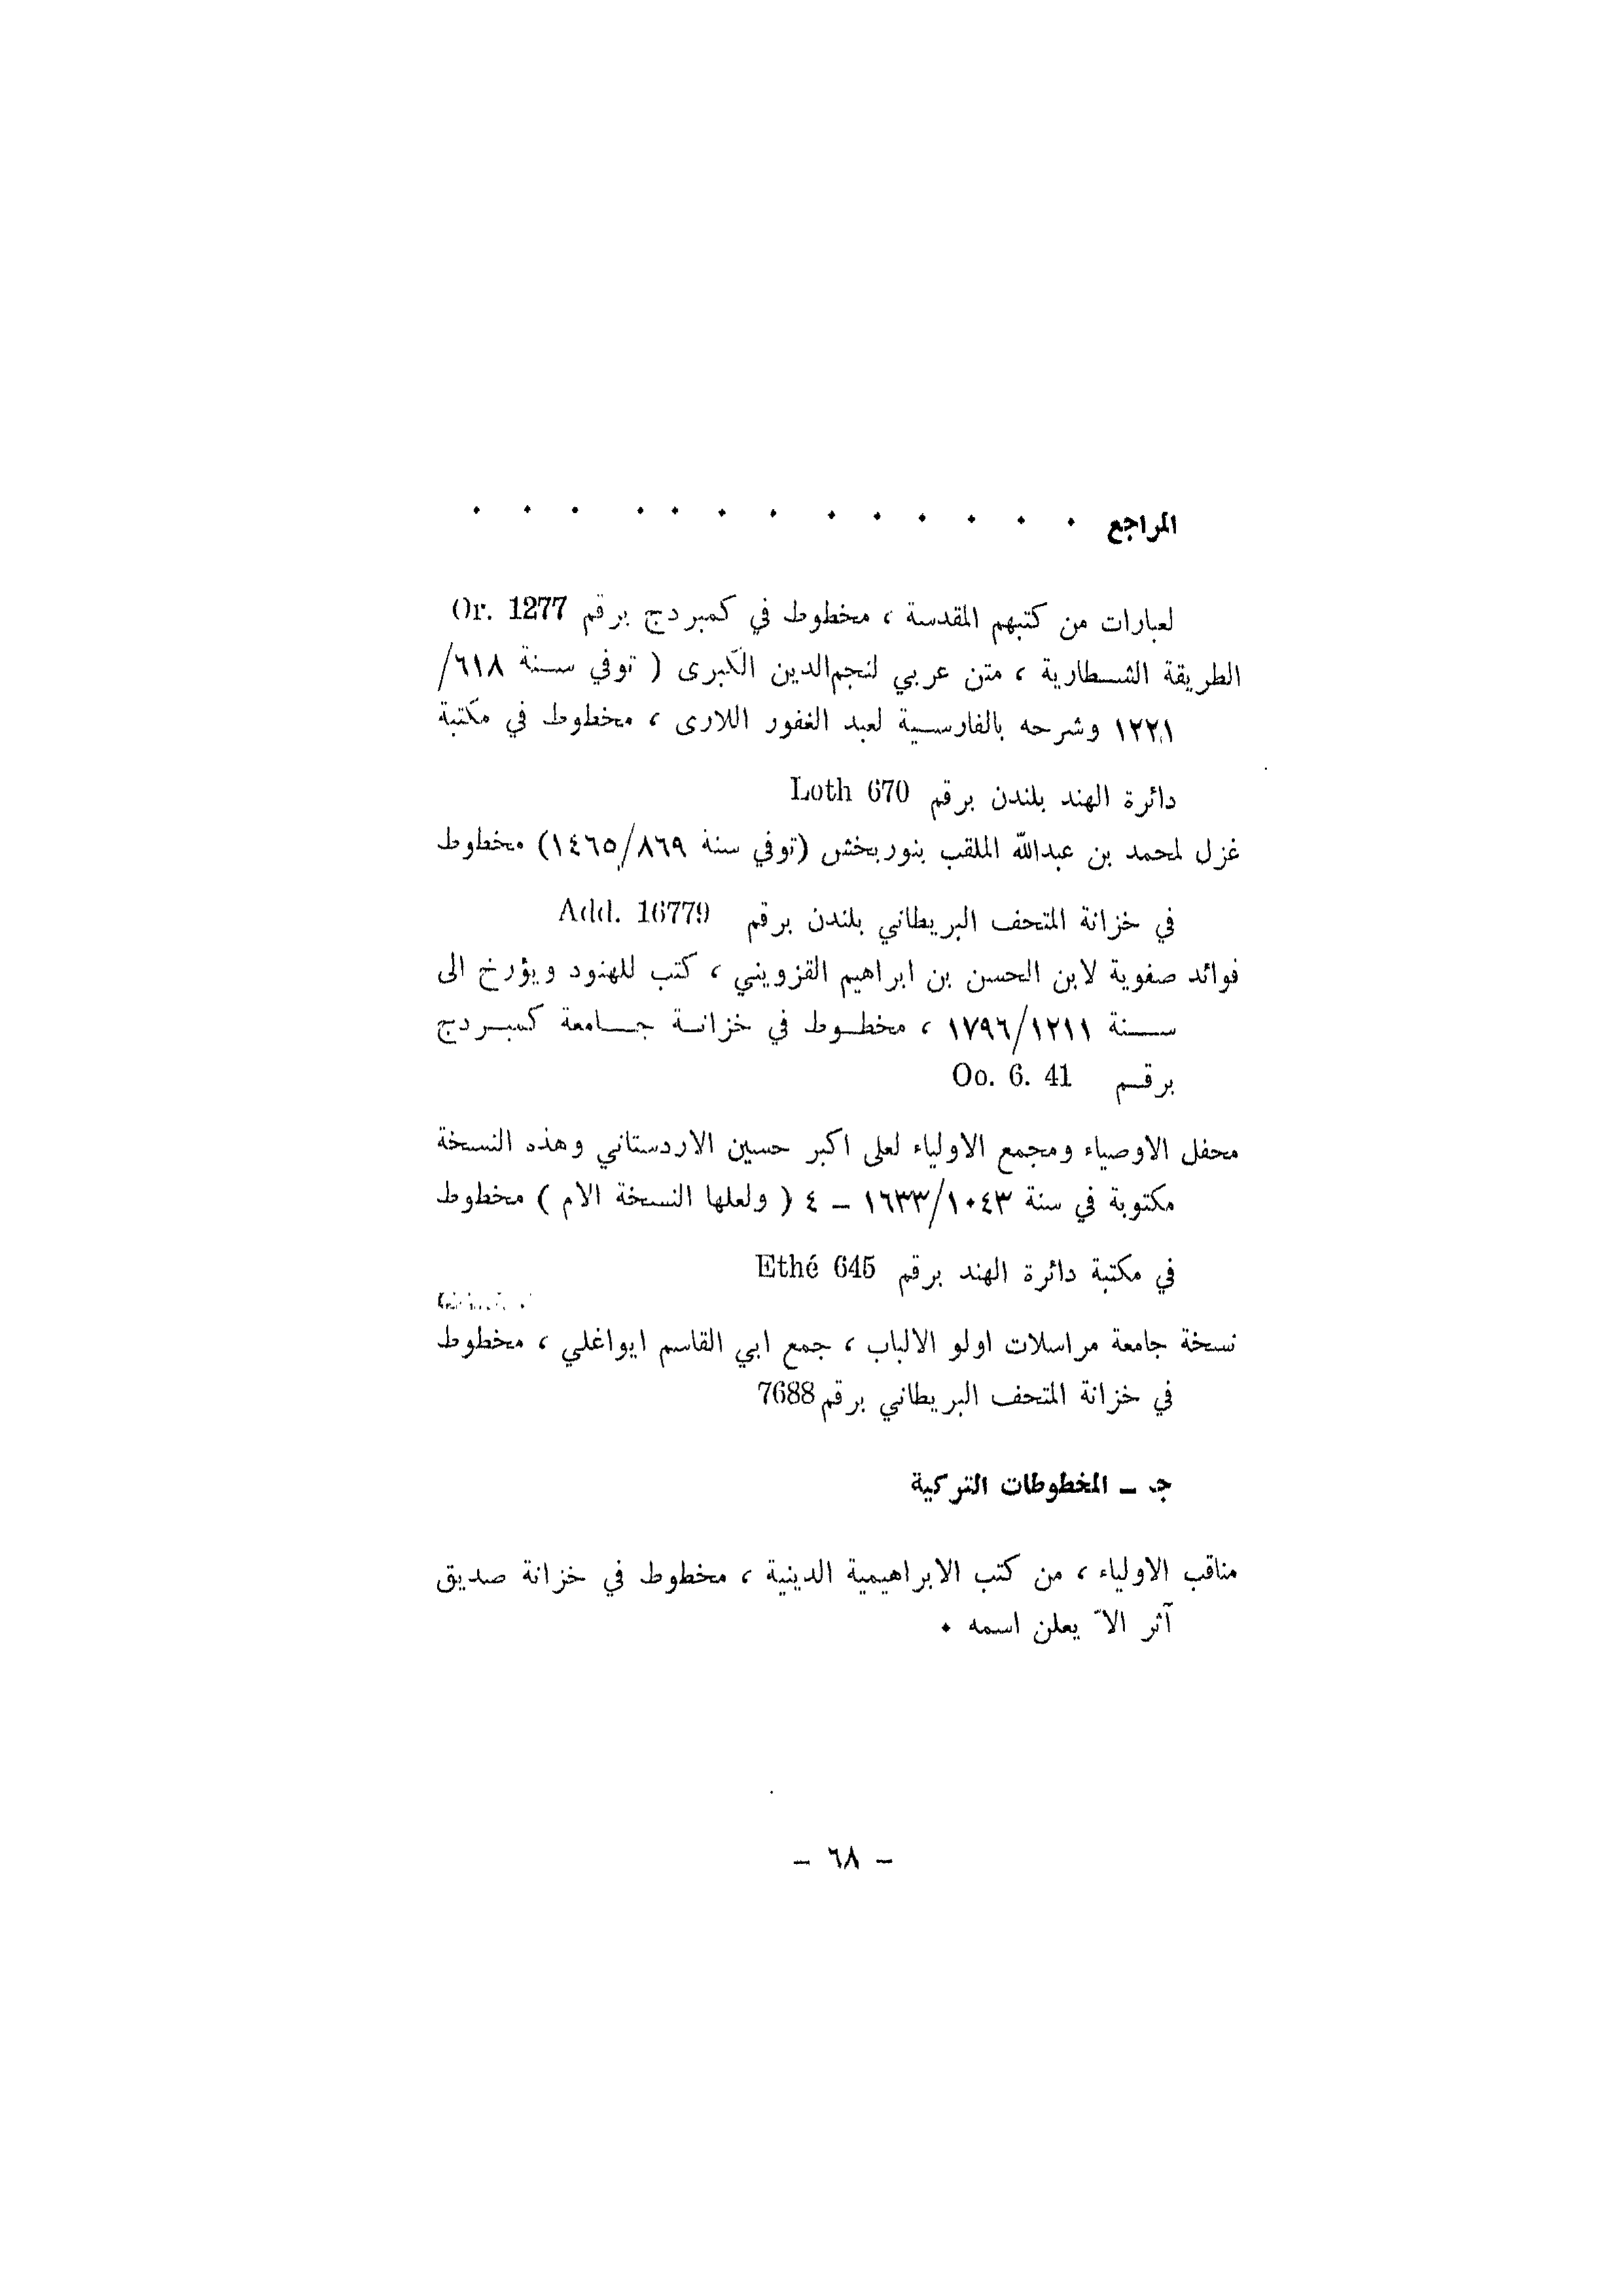 المراجع . . . . . . . . . . . . .
لعبارات من كتبهم المقدسة ، مخطوط في كمبردج برقم Or. 1277
الطريقة الشطارية ، متن عربي لنجم‌الدين الكبرى ( توفي سنة ٦١٨/
١٢٢١ وشرحه بالفارسية لعبد الغفور اللارى ، مخطوط في مكتبة
دائرة الهند بلندن برقم Loth 670
غزل لمحمد بن عبدالله الملقب بنوربخش (توفي سنة ٨٦٩/١٤٦٥) مخطوط
في خزانة المتحف البريطاني بلندن برقم Add. 16779
فوائد صفوية لابن الحسن بن ابراهيم القزويني ، كتب للهنود ويؤرخ الى
سنة ١٢١١/١٧٩٦ ، مخطوط في خزانة جامعة كمبردج
برقم Oo. 6. 41
محفل الاوصياء ومجمع الاولياء لعلى اكبر حسين الاردستاني وهذه النسخة
مكتوبة في سنة ١٠٤٣/١٦٣٣ – ٤ ( ولعلها النسخة الام ) مخطوط
في مكتبة دائرة الهند برقم Ethé 645
نسخة جامعة مراسلات اولو الالباب ، جمع ابي القاسم ايواغلي ، مخطوط
في خزانة المتحف البريطاني برقم 7688
جـ – المخطوطات التركية
مناقب الاولياء ، من كتب الابراهيمية الدينية ، مخطوط في خزانة صديق
آثر الاّ يعلن اسمه .
– ٦٨ –